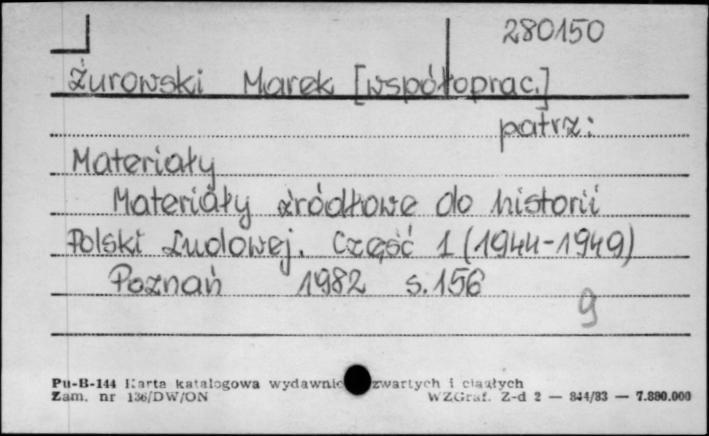 280150
Żurowski Marek [współoprac.]
patrz:
Materiały
Materiały źródłowe do historii
Polski Ludowej. Część 1 (1944-1949)
Poznań 1982 s. 156
9
Pu-B-144 Karta katalogowa wydawnic zwartych i ciągłych
Zam. nr 136/DW/ON WZGraf. Z-d 2 — 844/83 — 7.880.000